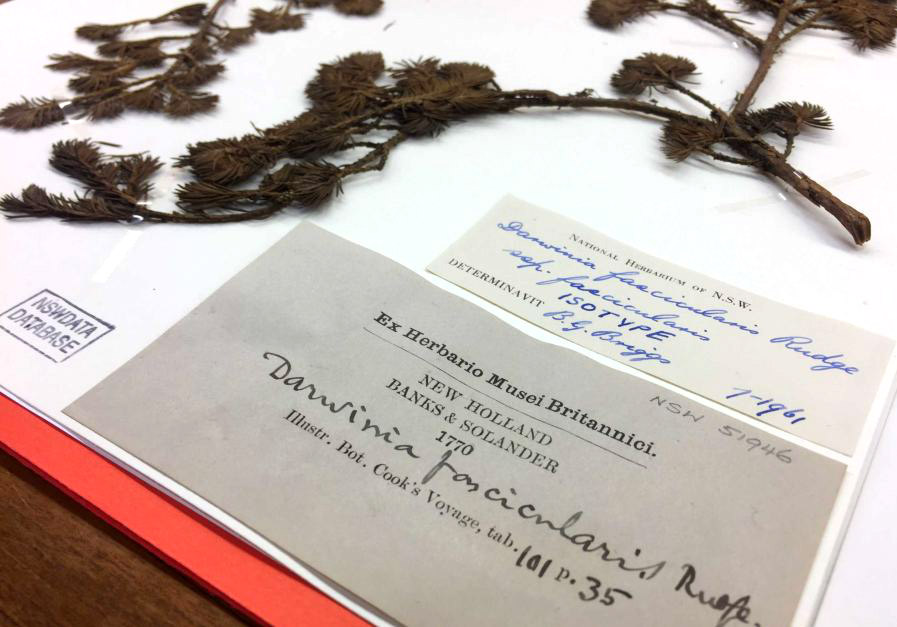 NATIONAL HERBARIUM OF N.S.W.
Darwinia fascicularis Rudge
ssp. fascicularis
ISOTYPE
DETERMINAVIT B.G. Briggs
7-1961
NSW 51946
NSWDATA
DATABASE
Ex Herbario Musei Britannici.
NEW HOLLAND
BANKS & SOLANDER
1770
Darwinia fascicularis Rudge.
Illustr. Bot. Cook's Voyage, tab. 101 p. 35